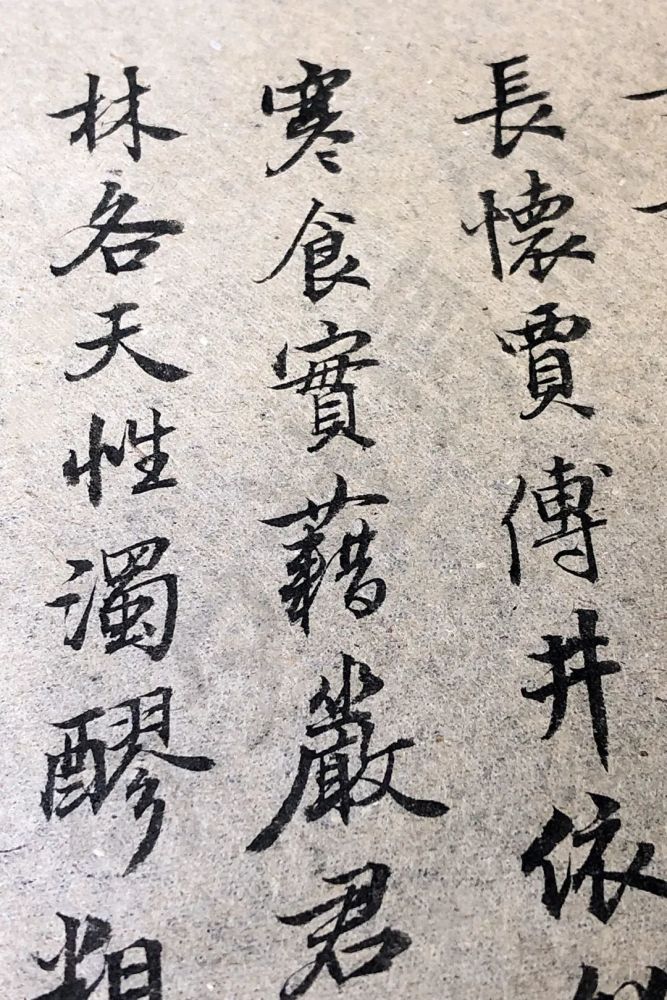 長懷賈傅井依
寒食實藉嚴君
林各天性濁醪